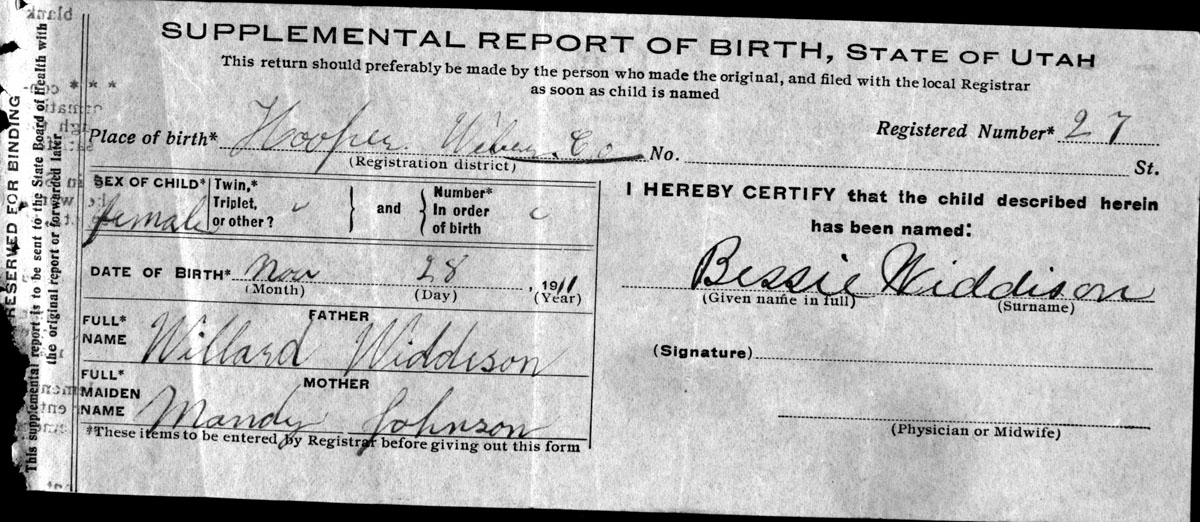 SUPPLEMENTAL REPORT OF BIRTH, STATE OF UTAH
This return should preferably be made by the person who made the original, and filed with the local Registrar
as soon as child is named
Registered Number* 27
Place of birth* Hooper Weber Co No. St.
(Registration district)
SEX OF CHILD* female
Twin,*
Triplet,
or other?
and
Number*
In order
of birth
DATE OF BIRTH* Nov 28, 1911
(Month) (Day) (Year)
FATHER
FULL*
NAME Willard Widdison
MOTHER
FULL*
MAIDEN
NAME Mandy Johnson
*These items to be entered by Registrar before giving out this form
I HEREBY CERTIFY that the child described herein
has been named:
Bessie Widdison
(Given name in full) (Surname)
(Signature)
(Physician or Midwife)
RESERVED FOR BINDING
This supplemental report is to be sent to the State Board of Health with
the original report or forwarded later